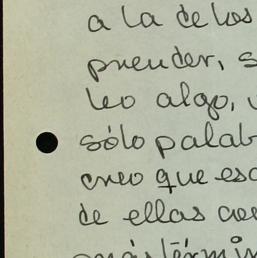 a la de los
prender, s
leo algo, 
sólo palab
creo que es
de ellas
más términ